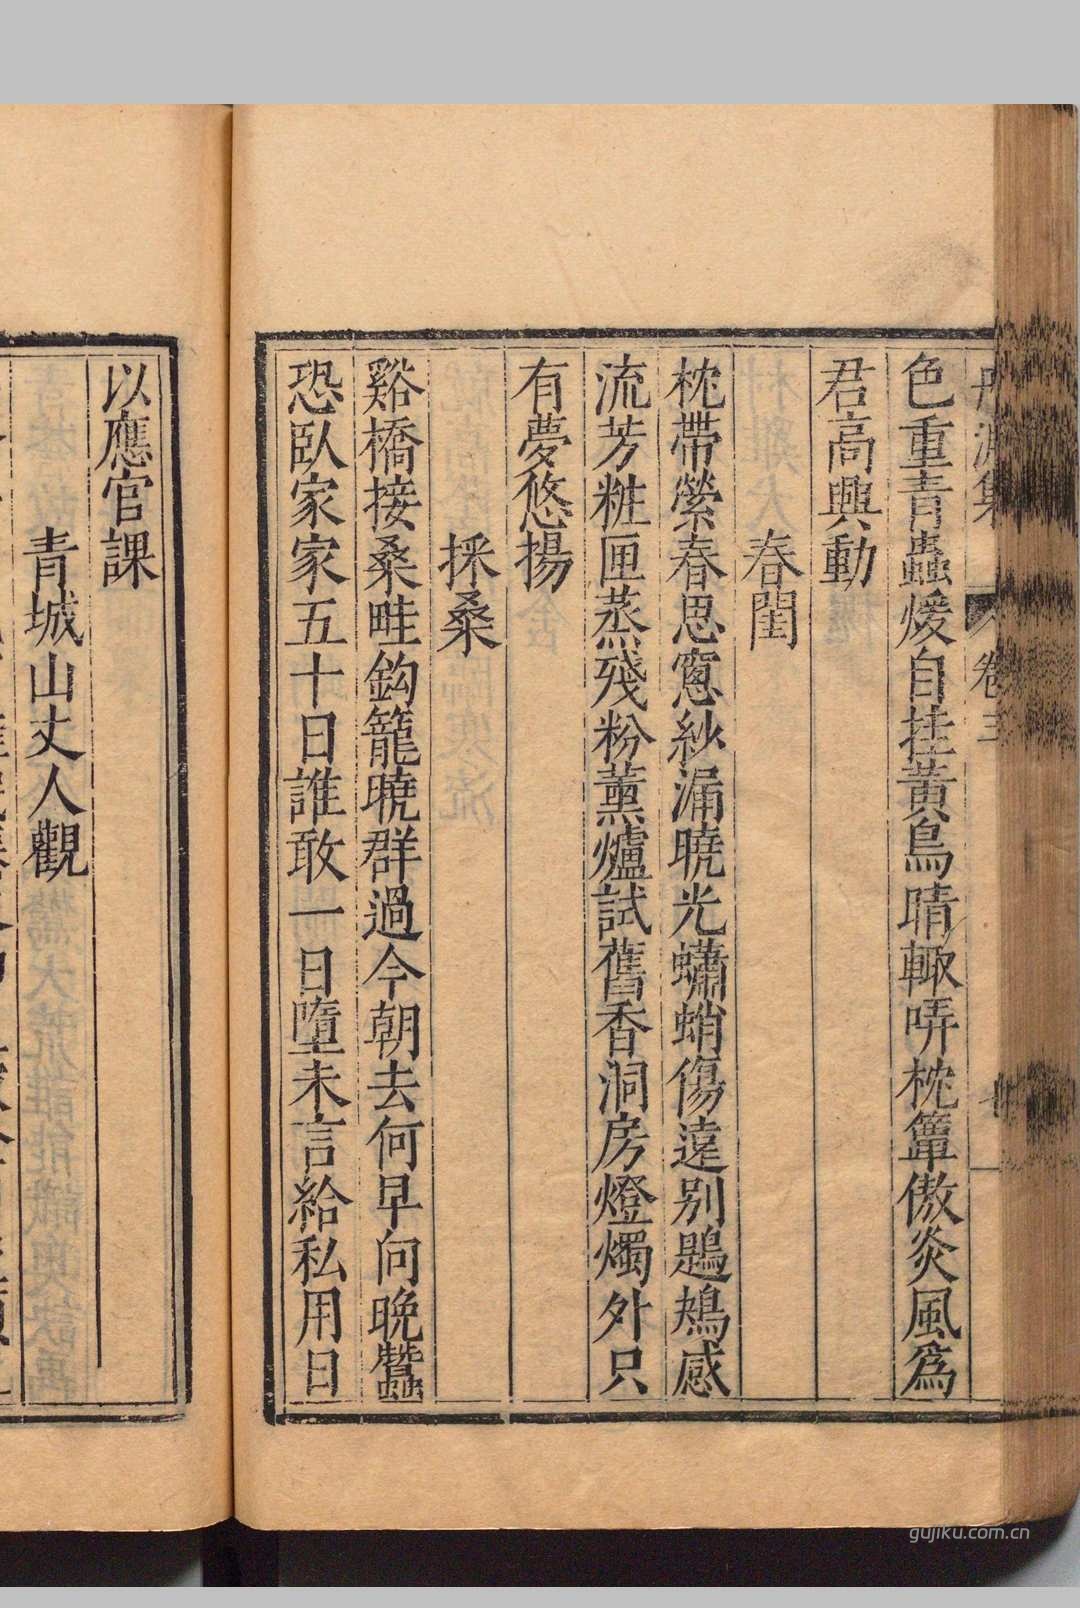 丹淵集 卷三
色重青蟲煖自挂黃鳥晴輙哢枕簟傲炎風爲
君高興動
春閨
枕帶縈春思窻紗漏曉光蠨蛸傷遠别鶗鴂感
流芳粧匣蒸殘粉薰爐試舊香洞房燈燭外只
有夢悠揚
採桑
谿橋接桑畦鈎籠曉群過今朝去何早向晚蠶
恐臥家家五十日誰敢一日墮未言給私用日
以應官課
青城山丈人觀
gujiku.com.cn